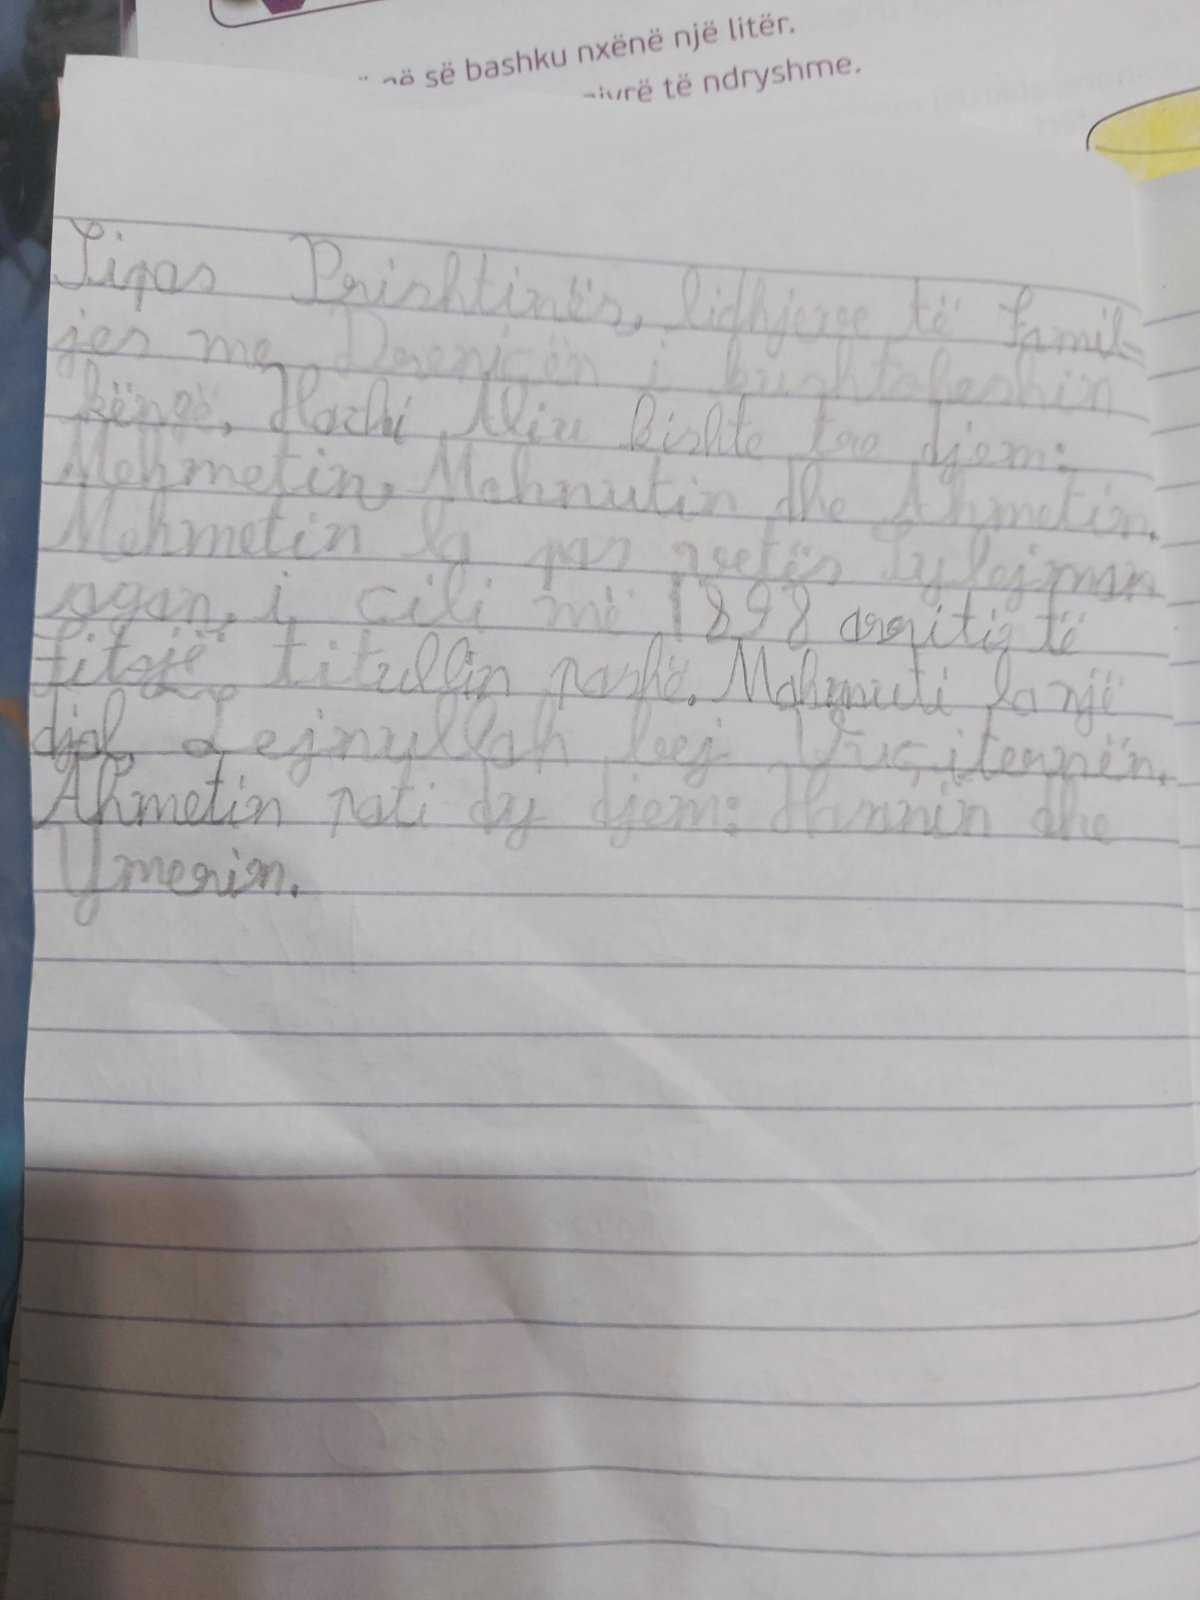 së bashku nxënë një litër.
të ndryshme.
Sipas Prishtinës, lidhjere të famil-
jes me Drenicën i kushtoheshin
këngë. Haxhi Aliu kishte tre djem:
Mehmetin, Mahmutin dhe Ahmetin.
Mehmetin la pas vetës Sylejman
agan, i cili më 1898 arriti të
fitojë titullin pashë. Mahmuti la një
djal, Zejnullah bej Vuçiternën.
Ahmetin pati dy djem: Hasanin dhe
Ymerin.